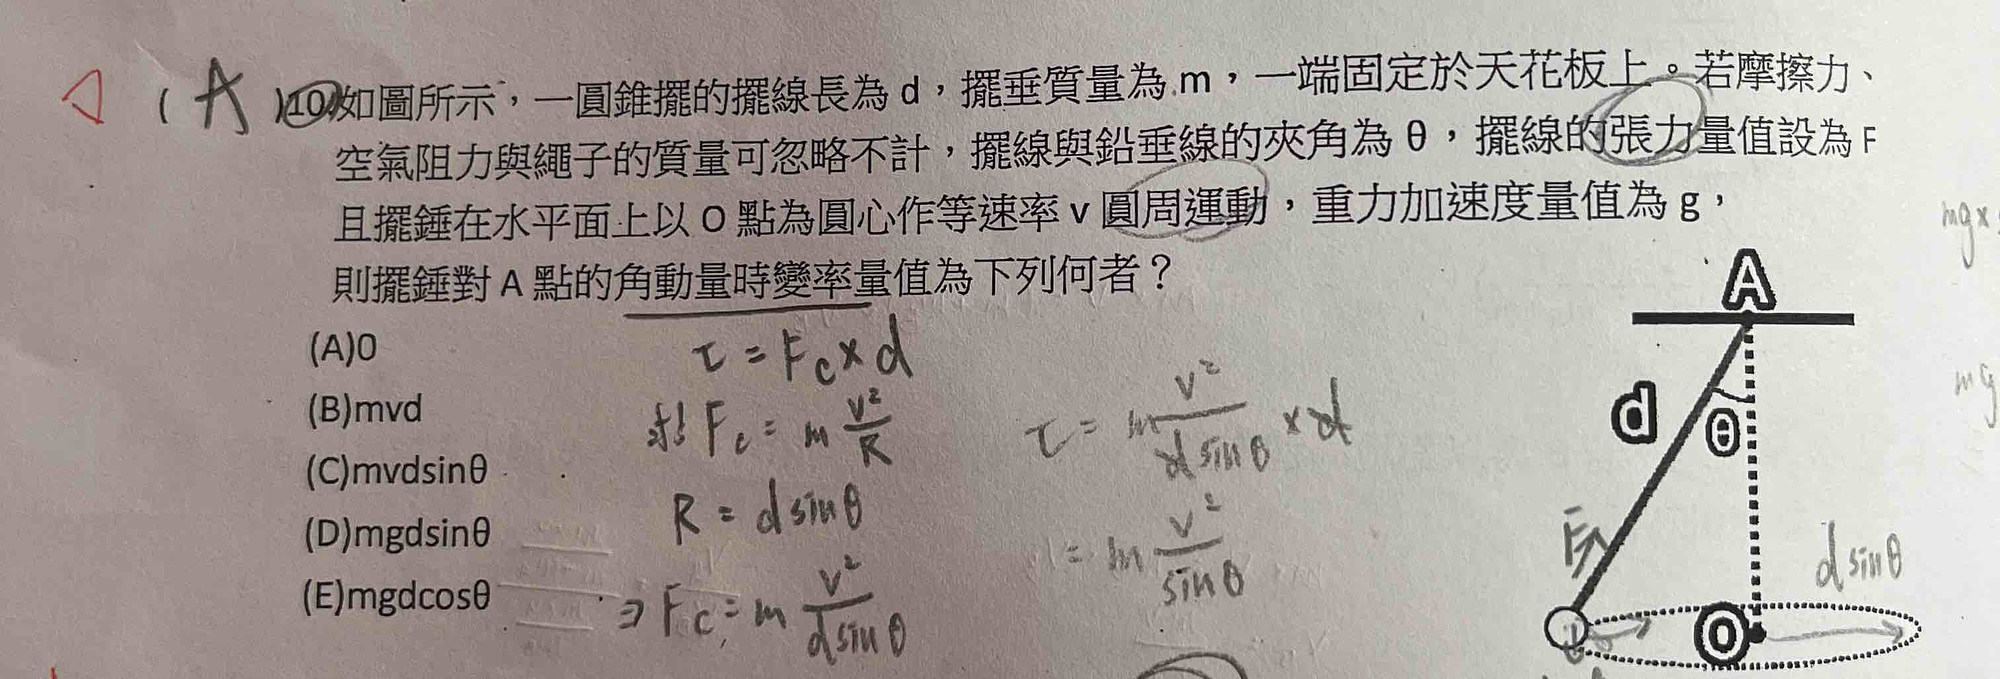 (A)10.如圖所示，一圓錐擺的擺線長為 d，擺垂質量為 m，一端固定於天花板上。若摩擦力、
空氣阻力與繩子的質量可忽略不計，擺線與鉛垂線的夾角為 θ，擺線的張力量值設為 F
且擺錘在水平面上以 O 點為圓心作等速率 v 圓周運動，重力加速度量值為 g，
則擺錘對 A 點的角動量時變率量值為下列何者？
(A)0
(B)mvd
(C)mvdsinθ
(D)mgdsinθ
(E)mgdcosθ
τ = Fc × d
Fc = m v²/R
R = d sinθ
⇒ Fc = m v²/(d sinθ)
τ = m v²/(d sinθ) × d
= m v²/sinθ
A
d
θ
F
O
d sinθ
mg×
mg